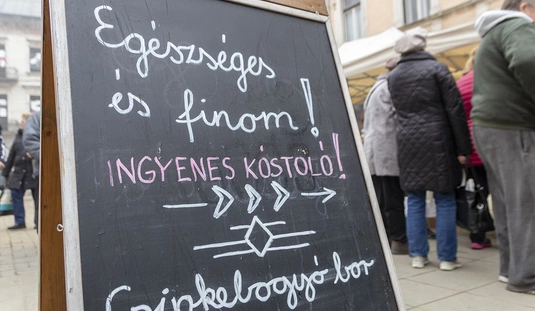 Egészséges
és finom!
INGYENES KÓSTOLÓ!
Csipkebogyó bor